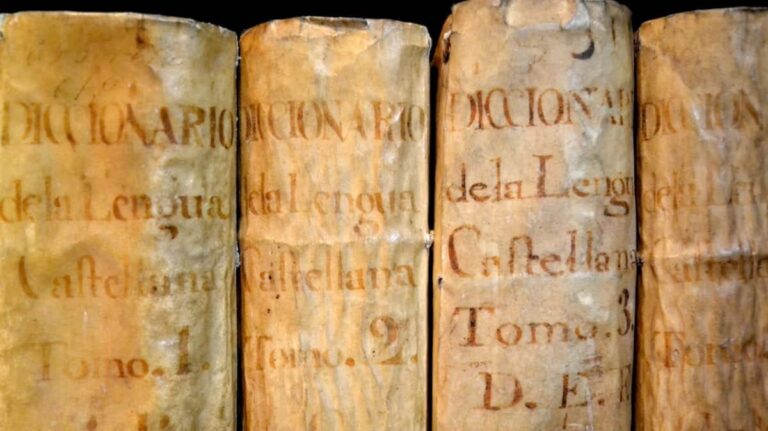 DICCIONARIO
de la Lengua
Caſtellana
Tomo. 1.
DICCIONARIO
de la Lengua
Caſtellana
Tomo. 2.
DICCIONARI
de la Lengua
Caſtellana
Tomo. 3.
D. E. F
DICCION
de la Len
Caſtella
Tomo.